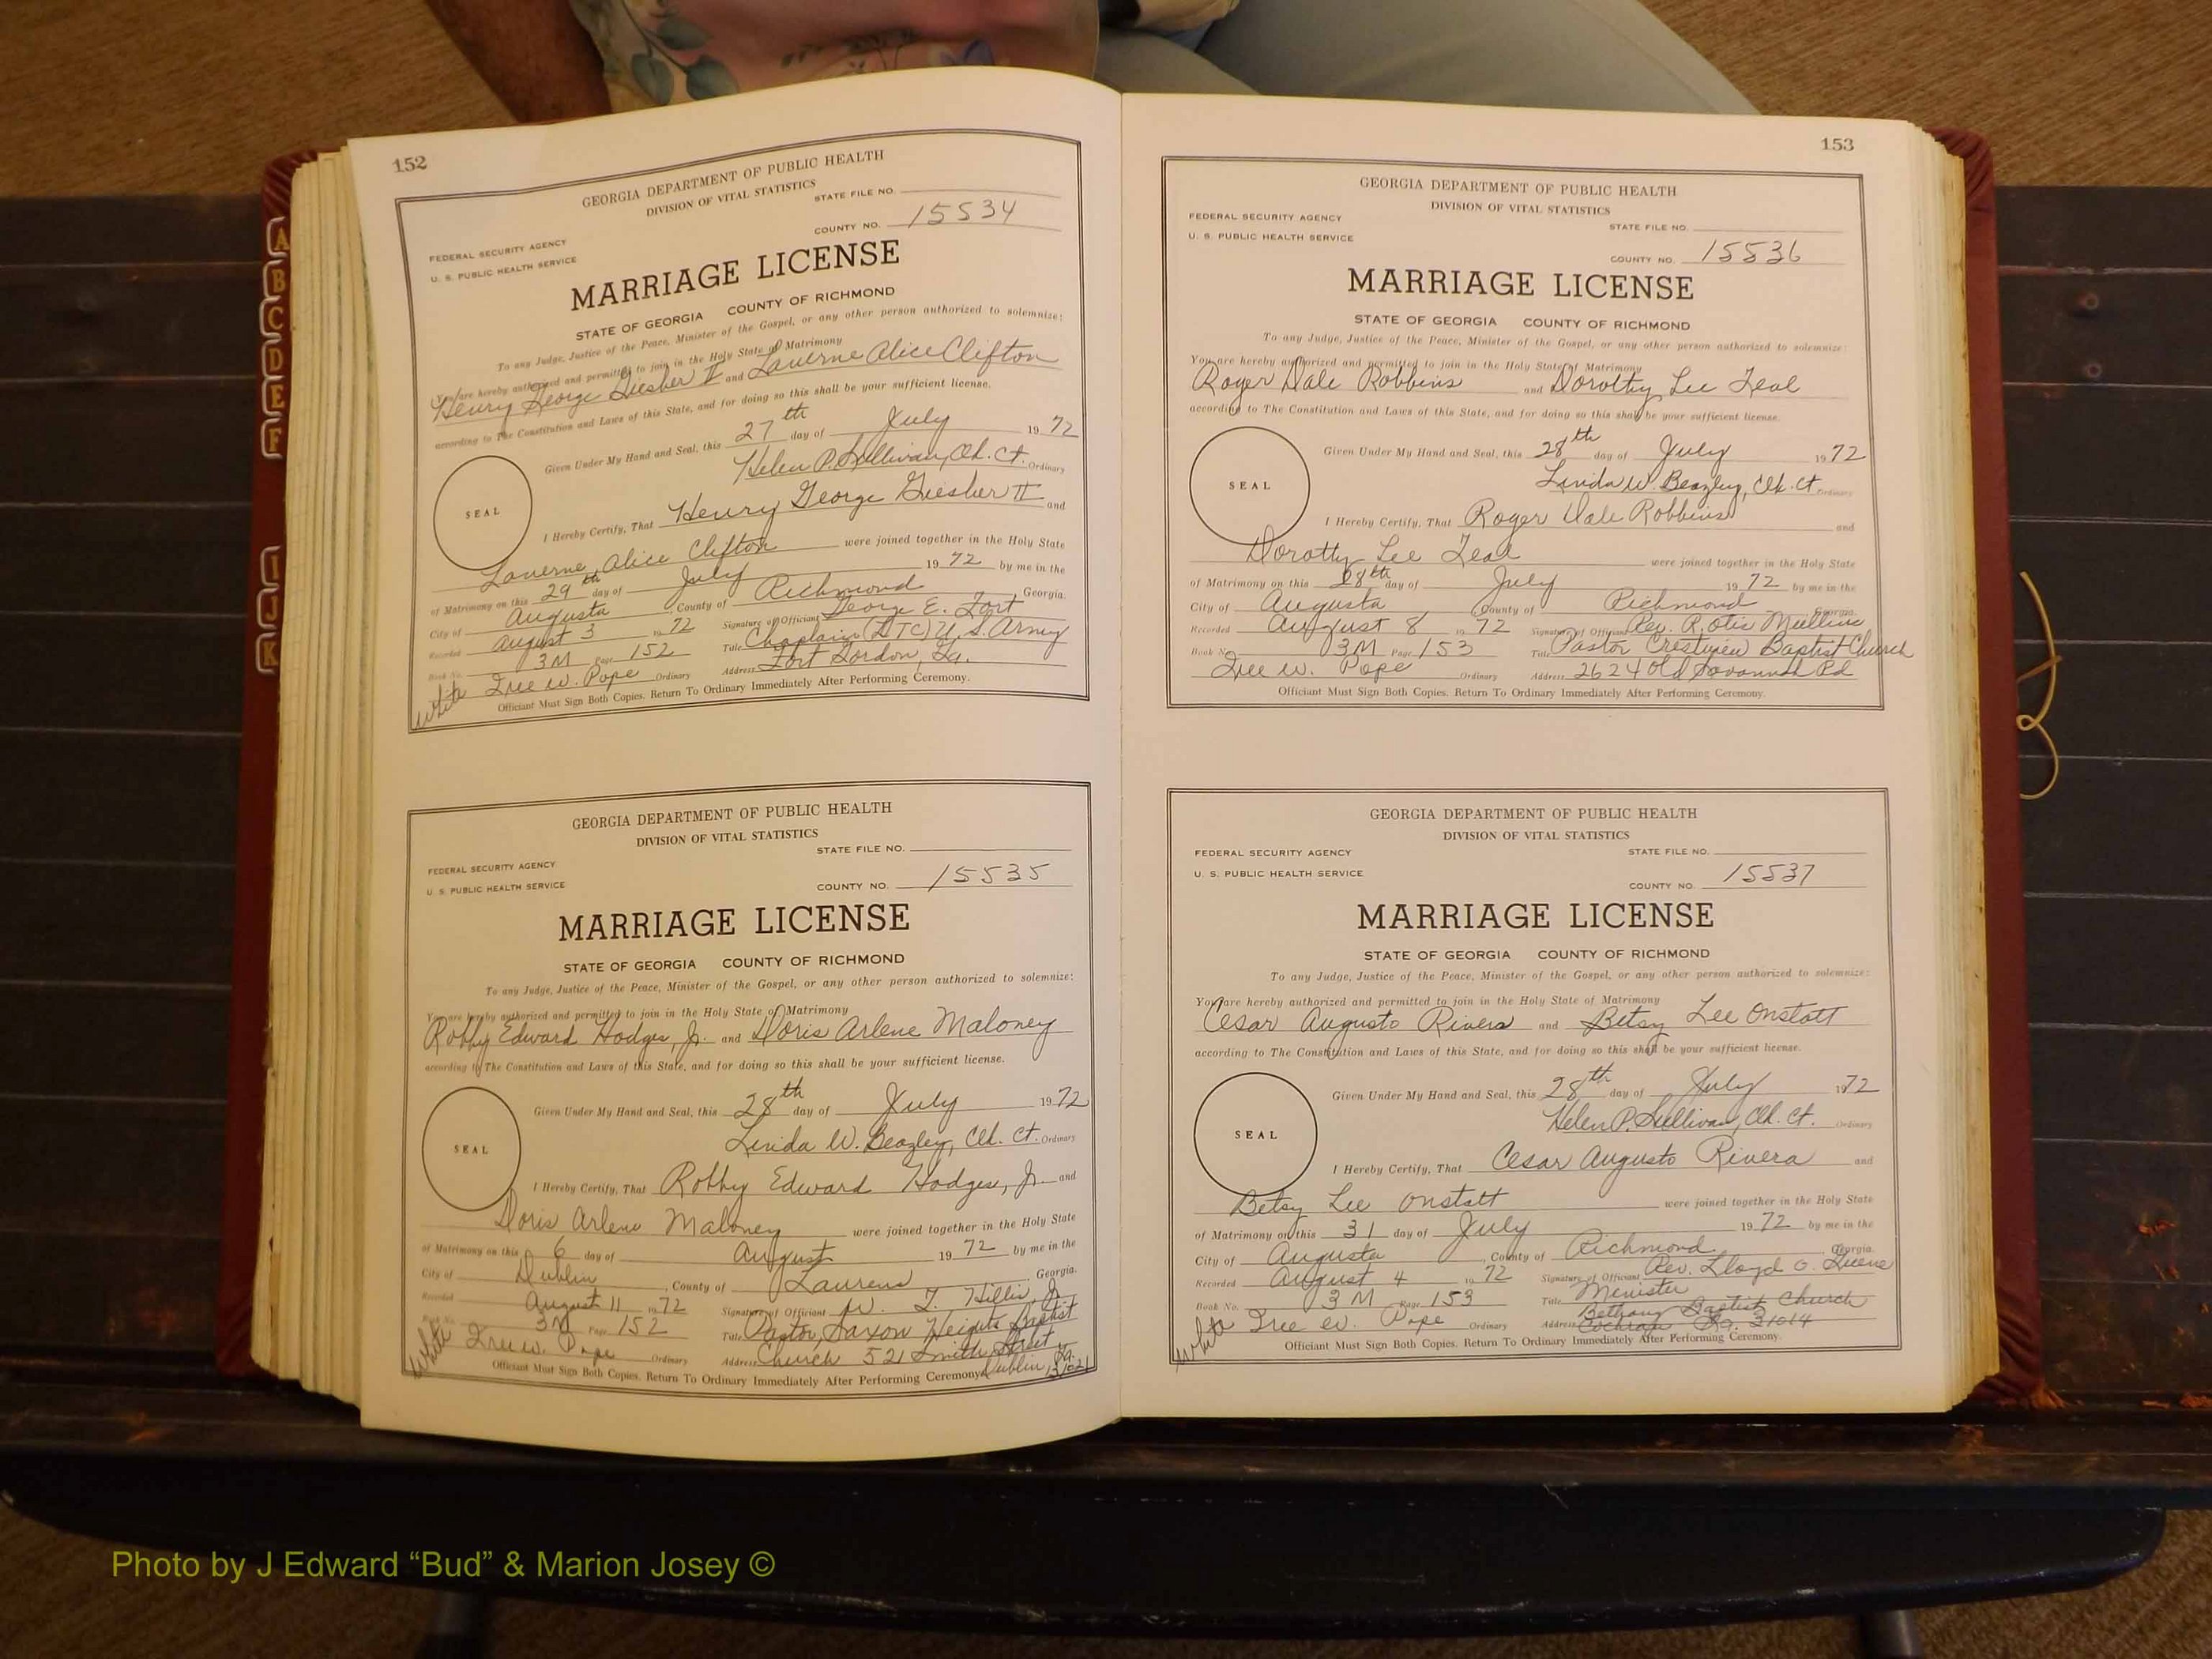 152
GEORGIA DEPARTMENT OF PUBLIC HEALTH
DIVISION OF VITAL STATISTICS
STATE FILE NO.
FEDERAL SECURITY AGENCY
COUNTY NO. 15534
U. S. PUBLIC HEALTH SERVICE
MARRIAGE LICENSE
STATE OF GEORGIA COUNTY OF RICHMOND
To any Judge, Justice of the Peace, Minister of the Gospel, or any other person authorized to solemnize:
You are hereby authorized and permitted to join in the Holy State of Matrimony
Henry George Giesher II and Laverne Alice Clifton
according to The Constitution and Laws of this State, and for doing so this shall be your sufficient license.
Given Under My Hand and Seal, this 27th day of July 1972
Helen P. Sullivan, Clk. Ct. Ordinary
SEAL
I Hereby Certify, That Henry George Giesher II and
Laverne Alice Clifton were joined together in the Holy State
of Matrimony on this 29th day of July 1972 by me in the
City of Augusta, County of Richmond, Georgia.
Recorded August 3 1972 Signature of Officiant George E. Fort
Book No. 3M Page 152 Title Chaplain (LTC) U.S. Army
Iree W. Pope Ordinary Address Fort Gordon, Ga.
White
Officiant Must Sign Both Copies. Return To Ordinary Immediately After Performing Ceremony.
GEORGIA DEPARTMENT OF PUBLIC HEALTH
DIVISION OF VITAL STATISTICS
STATE FILE NO.
FEDERAL SECURITY AGENCY
U. S. PUBLIC HEALTH SERVICE
COUNTY NO. 15535
MARRIAGE LICENSE
STATE OF GEORGIA COUNTY OF RICHMOND
To any Judge, Justice of the Peace, Minister of the Gospel, or any other person authorized to solemnize:
You are hereby authorized and permitted to join in the Holy State of Matrimony
Robby Edward Hodges, Jr. and Doris Arlene Maloney
according to The Constitution and Laws of this State, and for doing so this shall be your sufficient license.
Given Under My Hand and Seal, this 28th day of July 1972
Linda W. Beazley, Clk. Ct. Ordinary
SEAL
I Hereby Certify, That Robby Edward Hodges, Jr. and
Doris Arlene Maloney were joined together in the Holy State
of Matrimony on this 6 day of August 1972 by me in the
City of Dublin, County of Laurens, Georgia.
Recorded August 11 1972 Signature of Officiant W. T. Hillis, Jr.
Book No. 3M Page 152 Title Pastor, Saxon Heights Baptist
Iree W. Pope Ordinary Address Church 521 Smith Street
Dublin, Ga. 31021
White
Officiant Must Sign Both Copies. Return To Ordinary Immediately After Performing Ceremony.
153
GEORGIA DEPARTMENT OF PUBLIC HEALTH
DIVISION OF VITAL STATISTICS
FEDERAL SECURITY AGENCY
STATE FILE NO.
U. S. PUBLIC HEALTH SERVICE
COUNTY NO. 15536
MARRIAGE LICENSE
STATE OF GEORGIA COUNTY OF RICHMOND
To any Judge, Justice of the Peace, Minister of the Gospel, or any other person authorized to solemnize:
You are hereby authorized and permitted to join in the Holy State of Matrimony
Roger Dale Robbins and Dorothy Lee Teal
according to The Constitution and Laws of this State, and for doing so this shall be your sufficient license.
Given Under My Hand and Seal, this 28th day of July 1972
Linda W. Beazley, Clk. Ct. Ordinary
SEAL
I Hereby Certify, That Roger Dale Robbins and
Dorothy Lee Teal were joined together in the Holy State
of Matrimony on this 28th day of July 1972 by me in the
City of Augusta, County of Richmond, Georgia.
Recorded August 8 1972 Signature of Officiant Rev. R. Otis Mullins
Book No. 3M Page 153 Title Pastor Crestview Baptist Church
Iree W. Pope Ordinary Address 2624 Old Savannah Rd
Officiant Must Sign Both Copies. Return To Ordinary Immediately After Performing Ceremony.
GEORGIA DEPARTMENT OF PUBLIC HEALTH
DIVISION OF VITAL STATISTICS
FEDERAL SECURITY AGENCY
STATE FILE NO.
U. S. PUBLIC HEALTH SERVICE
COUNTY NO. 15537
MARRIAGE LICENSE
STATE OF GEORGIA COUNTY OF RICHMOND
To any Judge, Justice of the Peace, Minister of the Gospel, or any other person authorized to solemnize:
You are hereby authorized and permitted to join in the Holy State of Matrimony
Cesar Augusto Rivera and Betsy Lee Onstott
according to The Constitution and Laws of this State, and for doing so this shall be your sufficient license.
Given Under My Hand and Seal, this 28th day of July 1972
Helen P. Sullivan, Clk. Ct. Ordinary
SEAL
I Hereby Certify, That Cesar Augusto Rivera and
Betsy Lee Onstott were joined together in the Holy State
of Matrimony on this 31 day of July 1972 by me in the
City of Augusta, County of Richmond, Georgia.
Recorded August 4 1972 Signature of Officiant Rev. Lloyd G. Queene
Book No. 3M Page 153 Title Minister
Bethany Baptist Church
Iree W. Pope Ordinary Address Cochran Ga. 31014
White
Officiant Must Sign Both Copies. Return To Ordinary Immediately After Performing Ceremony.
A
B
C
D
E
F
I
J
K
Photo by J Edward “Bud” & Marion Josey ©